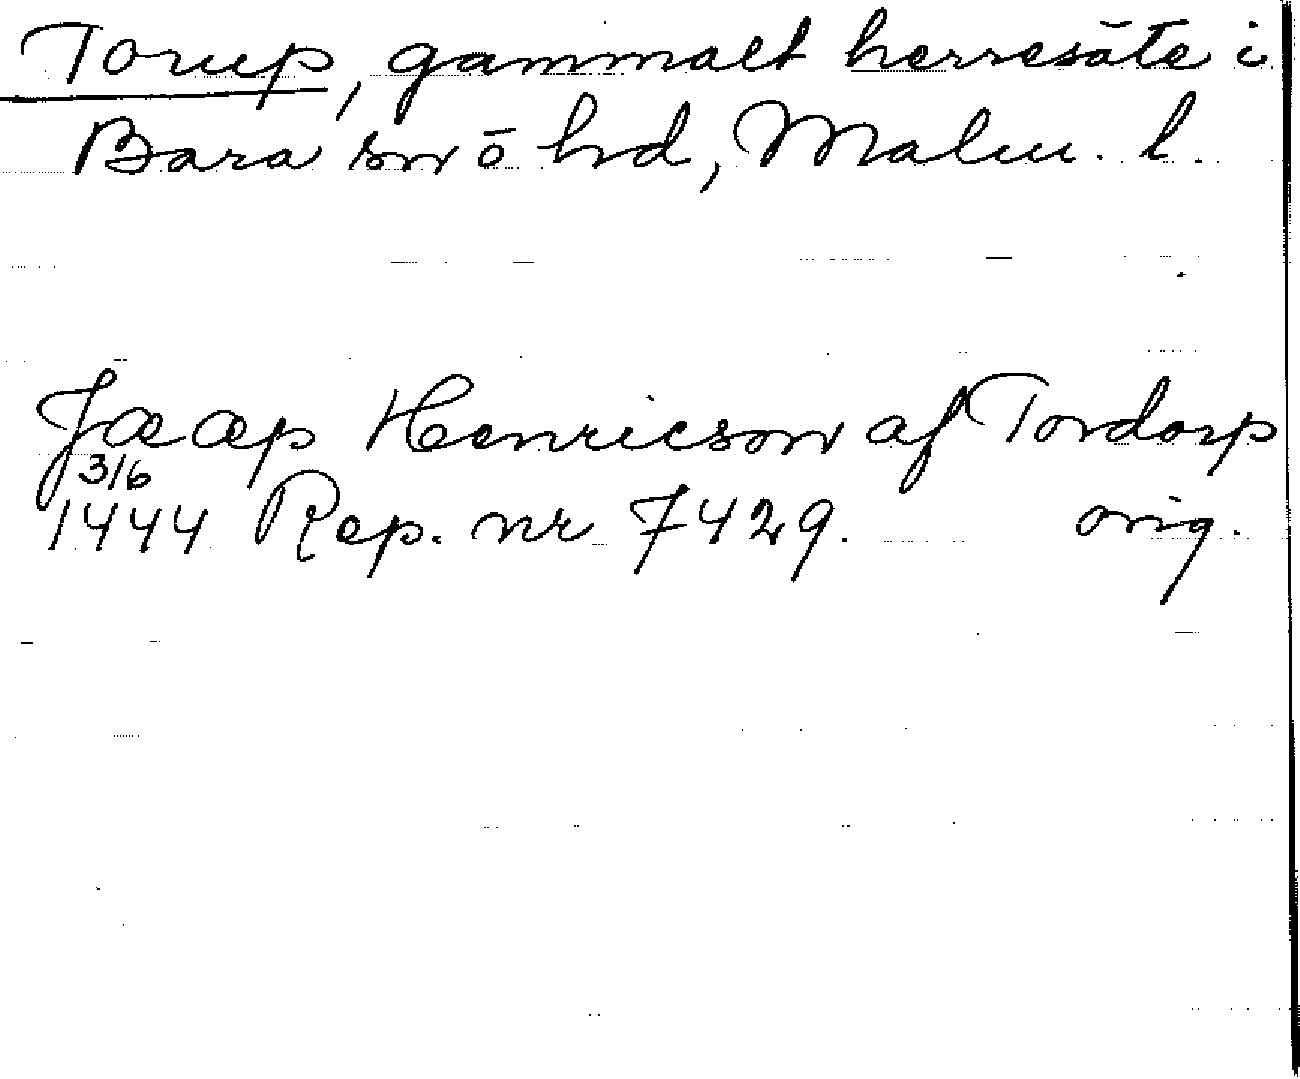 Torup, gammalt herresäte i
Bara sn ō hrd, Malm. l.
Jæaep Henricson af Tordorp
3/6
1444 Rep. nr 7429. orig.